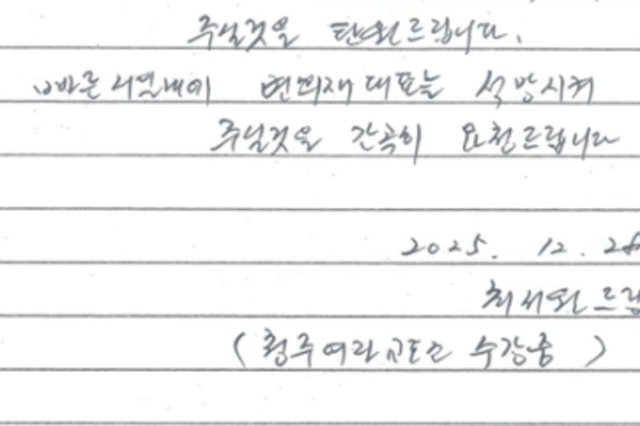 주실것을 탄원드립니다.
빠른 시일내에 변희재 대표를 석방시켜
주실것을 간곡히 요청드립니다
2025. 12. 28
최서원 드림
(청주여자교도소 수감중)